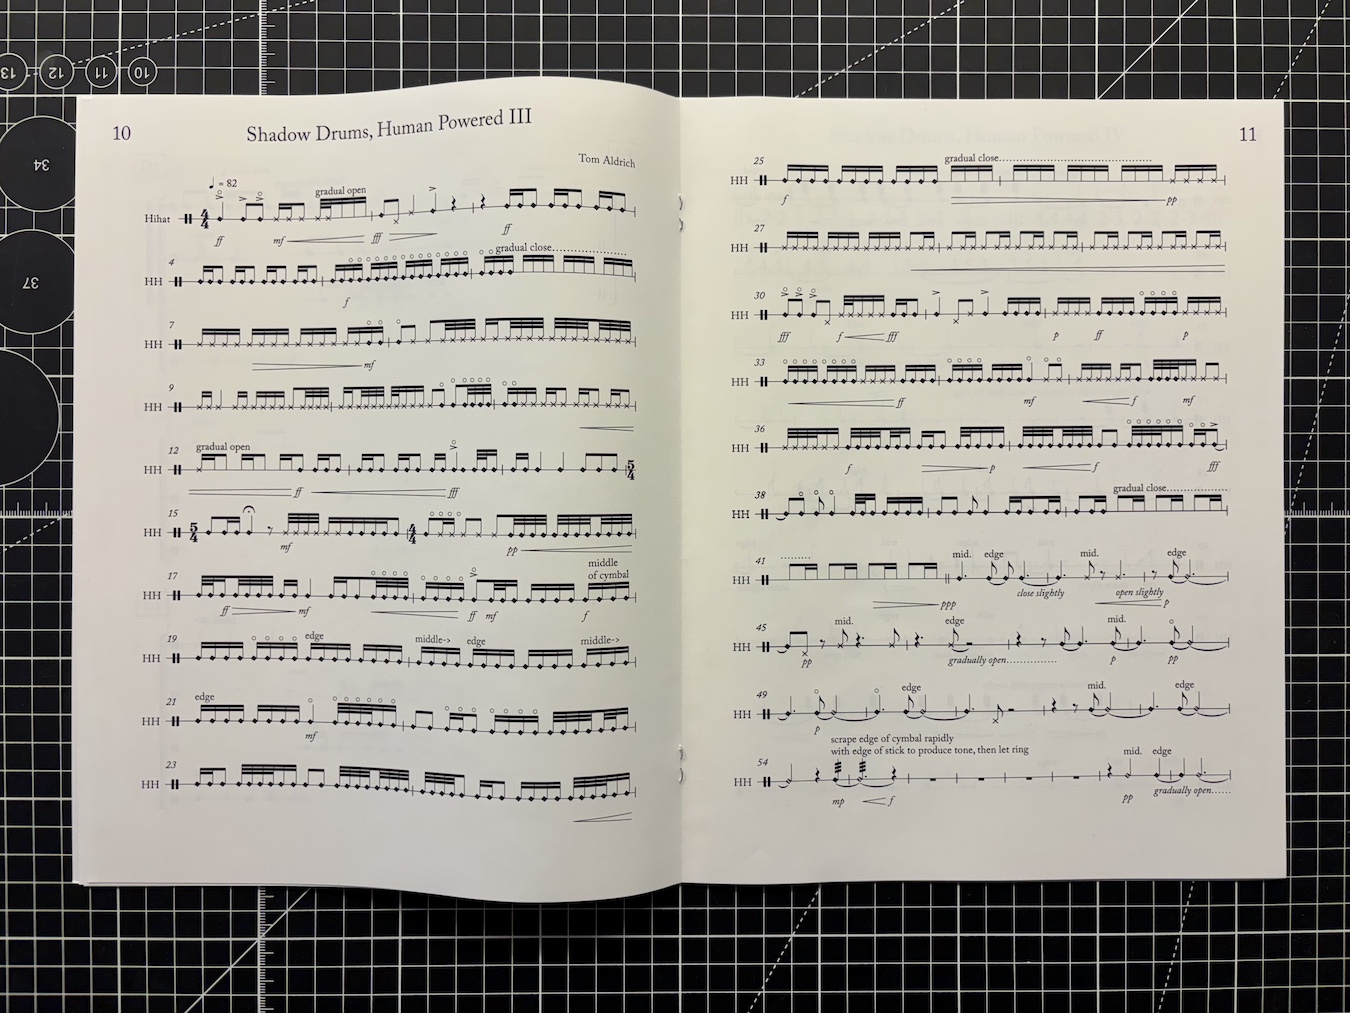 10
Shadow Drums, Human Powered III
Tom Aldrich
♩ = 82
gradual open
Hihat
4
4
ff mf fff ff
4
gradual close..............
HH
f
7
HH
mf
9
HH
12
gradual open
HH
5
4
ff fff
15
HH
5
4
4
4
mf pp
middle
of cymbal
17
HH
ff mf ff mf f
19
edge middle-> edge middle->
HH
21
edge
HH
mf
23
HH
11
25
gradual close
HH
f pp
27
HH
30
HH
fff f fff p ff p
33
HH
ff mf f mf
36
HH
f p f fff
38
gradual close
HH
41
mid. edge mid. edge
HH
close slightly open slightly
ppp p
45
mid. edge mid.
HH
pp gradually open p pp
49
edge mid. edge
HH
p
scrape edge of cymbal rapidly
with edge of stick to produce tone, then let ring
54
mid. edge
HH
mp f pp gradually open......
13 12 11 10
34
37